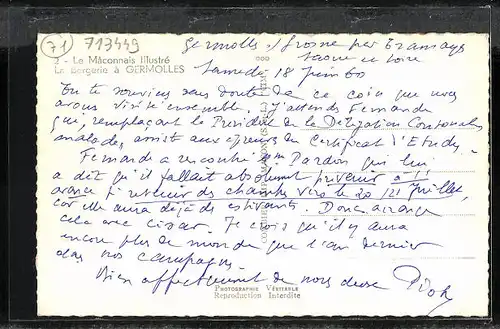 71
713449
Germolles s/ Grosne par Tramayes
Saone et Loire
Samedi 18 Juin 60
2 - Le Mâconnais Illustré
La Bergerie à GERMOLLES
Tu te souviens sans doute de ce coin que nous
avons visité ensemble. J'attends Fernande
qui, remplaçant le Président de la Délégation Cantonale
malade, assiste aux épreuves du Certificat d'Etudes.
Fernande a rencontré Mme Pardon qui lui
a dit qu'il fallait absolument prévenir à
avance retenir des chambres vers le 20/21 Juillet,
car elle aura déjà des estivants. Donc, arrange
cela avec Je crois qu'il y aura
encore plus de monde que l'an dernier
dans nos campagnes.
Bien affectueusement de nous deux
PHOTOGRAPHIE VÉRITABLE
Reproduction Interdite